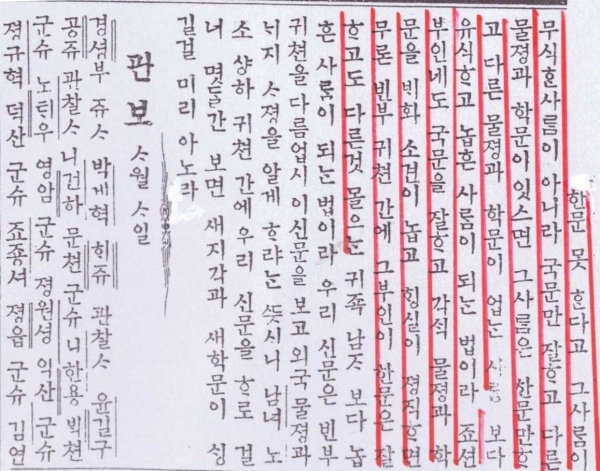 한문 못 ᄒᆞᆫ다고 그 사ᄅᆞᆷ이
무식ᄒᆞᆫ사ᄅᆞᆷ이 아니라 국문만 잘ᄒᆞ고 다른
물졍과 학문이잇스면 그사ᄅᆞᆷ은 한문만ᄒᆞ
고 다른 물졍과 학문이 업ᄂᆞᆫ 사ᄅᆞᆷ 보다
유식ᄒᆞ고 놉흔 사ᄅᆞᆷ이 되ᄂᆞᆫ 법이라 죠션
부인네도 국문을 잘ᄒᆞ고 각ᄉᆡᆨ 물졍과 학
문을 ᄇᆡ화 소견이 놉고 ᄒᆡᆼ실이 졍직ᄒᆞ면
무론 빈부 귀쳔 간에 그부인이 한문은 잘
ᄒᆞ고도 다른것 몰으ᄂᆞᆫ 귀죡 남ᄌᆞ 보다 놉
흔 사ᄅᆞᆷ이 되ᄂᆞᆫ 법이라 우리 신문은 빈부
귀쳔을 다름업시 이신문을 보고 외국 물졍과
ᄂᆡ지 ᄉᆞ졍을 알게 ᄒᆞ랴ᄂᆞᆫ ᄯᅳᆺ시니 남녀 노
소 샹하 귀쳔 간에 우리 신문을 ᄒᆞ로 걸
너 몃ᄃᆞᆯ간 보면 새지각과 새학문이 ᄉᆡᆼ
길걸 미리 아노라
관보 ᄉᆞ월 ᄉᆞ일
경셩부 쥬ᄉᆞ 박계혁 ᄒᆡ쥬 관찰ᄉᆞ 윤길구
공쥬 관찰ᄉᆞ 니건하 문쳔 군슈 니한용 박쳔
군슈 노ᄐᆡ우 영암 군슈 졍원셩 익산 군슈
졍규혁 덕산 군슈 죠죵셔 졍읍 군슈 김연